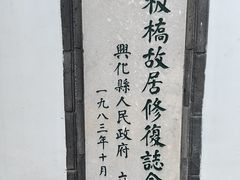 板橋故居修復誌
興化縣人民政府
一九八三年十月